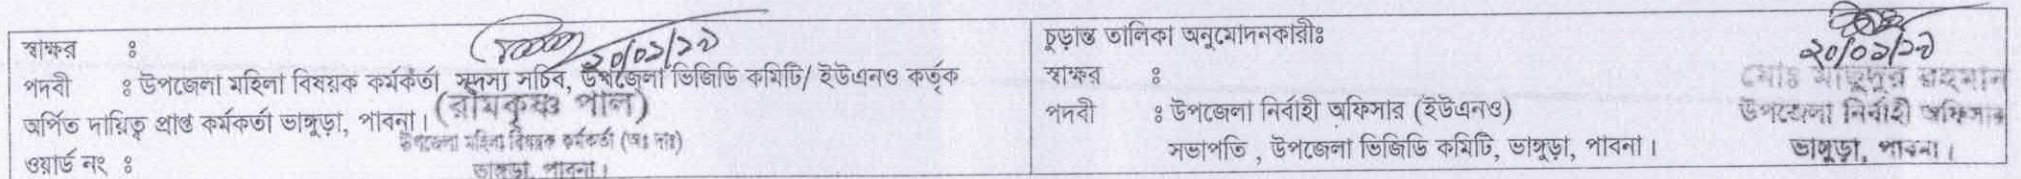 স্বাক্ষর ঃ
২০/০১/১৯
পদবী ঃ উপজেলা মহিলা বিষয়ক কর্মকর্তা, সদস্য সচিব, উপজেলা ভিজিডি কমিটি/ ইউএনও কর্তৃক
অর্পিত দায়িত্ব প্রাপ্ত কর্মকর্তা ভাঙ্গুড়া, পাবনা।
(রামকৃষ্ণ পাল)
উপজেলা মহিলা বিষয়ক কর্মকর্তা (অঃ দাঃ)
ভাঙ্গুড়া, পাবনা।
ওয়ার্ড নং ঃ
চুড়ান্ত তালিকা অনুমোদনকারীঃ
২০/০১/১৯
স্বাক্ষর ঃ
পদবী ঃ উপজেলা নির্বাহী অফিসার (ইউএনও)
সভাপতি , উপজেলা ভিজিডি কমিটি, ভাঙ্গুড়া, পাবনা।
মোঃ মাছুদুর রহমান
উপজেলা নির্বাহী অফিসার
ভাঙ্গুড়া, পাবনা।